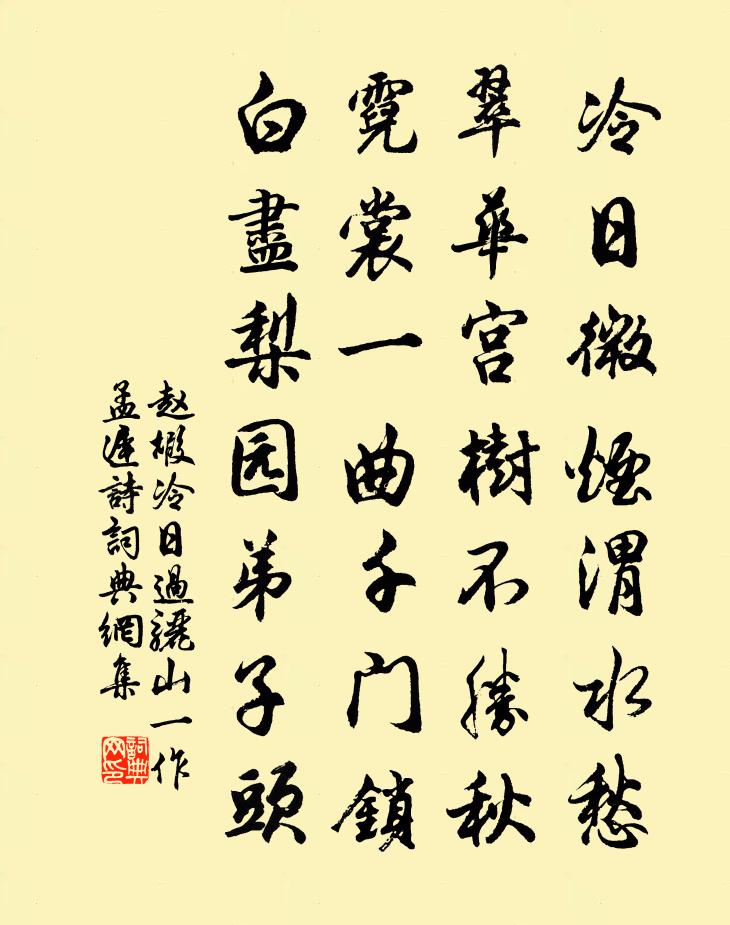 冷日微煙渭水愁
翠華宮樹不勝秋
霓裳一曲千门鎖
白盡梨园弟子頭
赵嘏冷日過驪山一作
孟遲詩詞典網集
詞典
网印